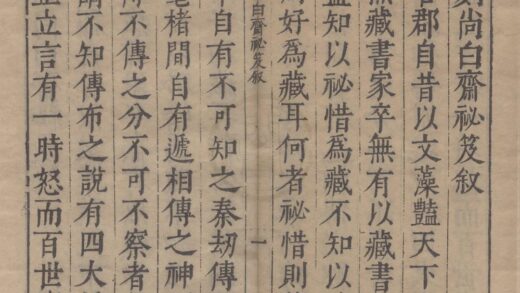 尚白齋祕笈叙
郡自昔以文藻豔天下
無藏書家卒無有以藏書
知以祕惜爲藏不知以
好爲藏耳何者祕惜則
尚白齋祕笈叙
一
自有不可知之秦劫傳
楮間自有遞相傳之神
不傳之分不可不察者
不知傳布之說有四大
立言有一時怒而百世